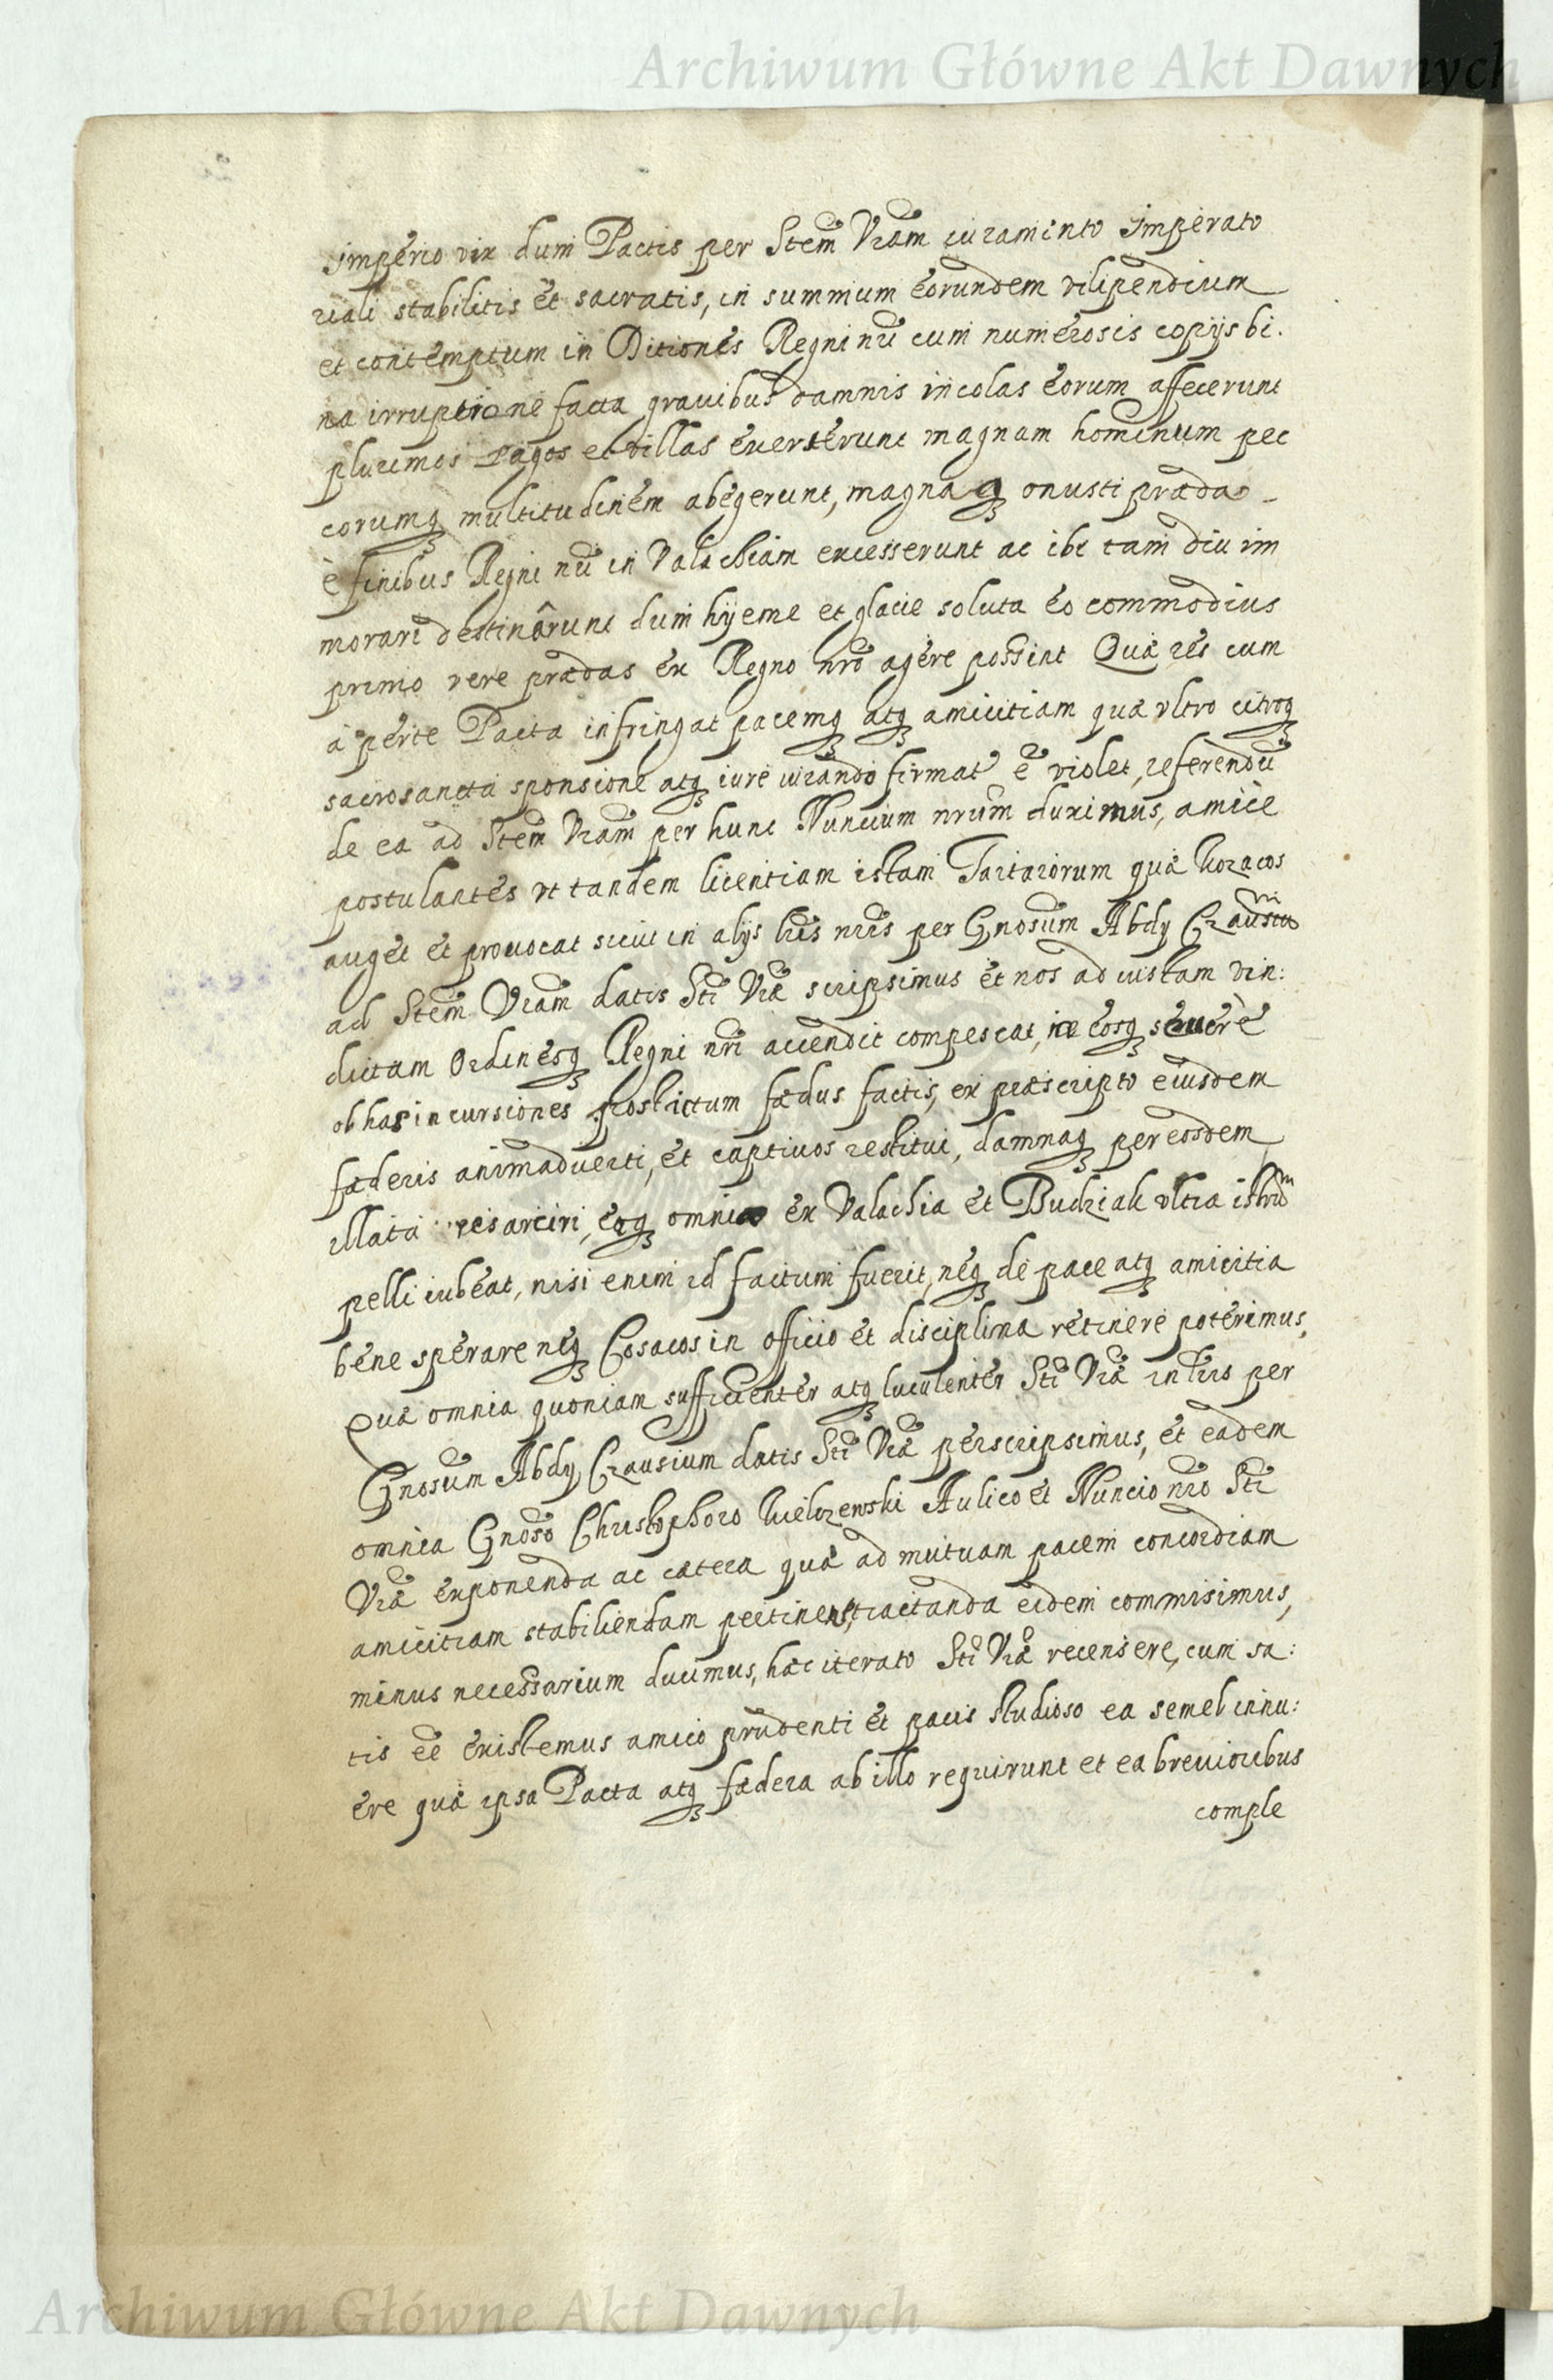 Archiwum Główne Akt Dawnych
Imperio vix dum Pactis per Stem Vram iuramento Imperato
riali stabilitis et sacratis, in summum eorundem vilipendium
et contemptum in Ditiones Regni nri cum numerosis copijs bi.
na irruptione facta grauibus damnis incolas eorum affecerunt
plurimos Pagos et villas euerterunt magnam hominum pec
corumq multitudinem abegerunt, magnaq onusti præda
è finibus Regni nri in Valachiam excesserunt ac ibi tam diu im
morari destinârunt dum hyeme et glacie soluta eo commodius
primo vere prædas ex Regno nro agere possint Quæ res cum
aperte Pacta infringat pacemq atq amicitiam quæ vltro citroq
sacrosancta sponsione atq iure iurando firmata e violet, referendu
de ea ad Stem Vram per hunc Nuncium nrum duximus, amice
postulantes vt tandem licentiam istam Tartarorum quæ Kozacos
auget et prouocat sicut in alijs lris nris per Gnosum Abdy Crausium
ad Stem Vram datis Sti Vræ scripsimus et nos ad iustam vin:
dictam Ordinesq Regni nri accendit compescat, in eosq seuere
ob has incursiones post ictum fædus factis, ex præscripto eiusdem
fæderis animaduerti, et captiuos restitui, damnaq per eosdem
illata resarciri, eosq omnes ex Valachia et Budziak vltra istrum
pelli iubeat, nisi enim id factum fuerit, neq de pace atq amicitia
bene sperare neq Cosacos in officio et disciplina retinere poterimus,
Quæ omnia quoniam sufficienter atq luculenter Sti Vræ in lris per
Gnosum Abdy Crausium datis Sti Vræ perscripsimus, et eadem
omnia Gnoso Christophoro Kielczewski Aulico et Nuncio nro Sti
Vræ exponenda ac cætera quæ ad mutuam pacem concordiam
amicitiam stabiliendam pertinent, tractanda eidem commisimus,
minus necessarium ducimus, hæc iterato Sti Vræ recensere, cum sa:
tis ee existemus amico prudenti et pacis studioso ea semel innu:
ere quæ ipsa Pacta atq fædera ab illo requirunt et ea breuioribus
comple
Archiwum Główne Akt Dawnych